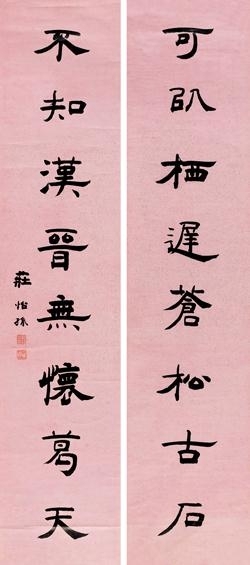 可以栖遲蒼松古石
不知漢晉無懷葛天
莊怡孫